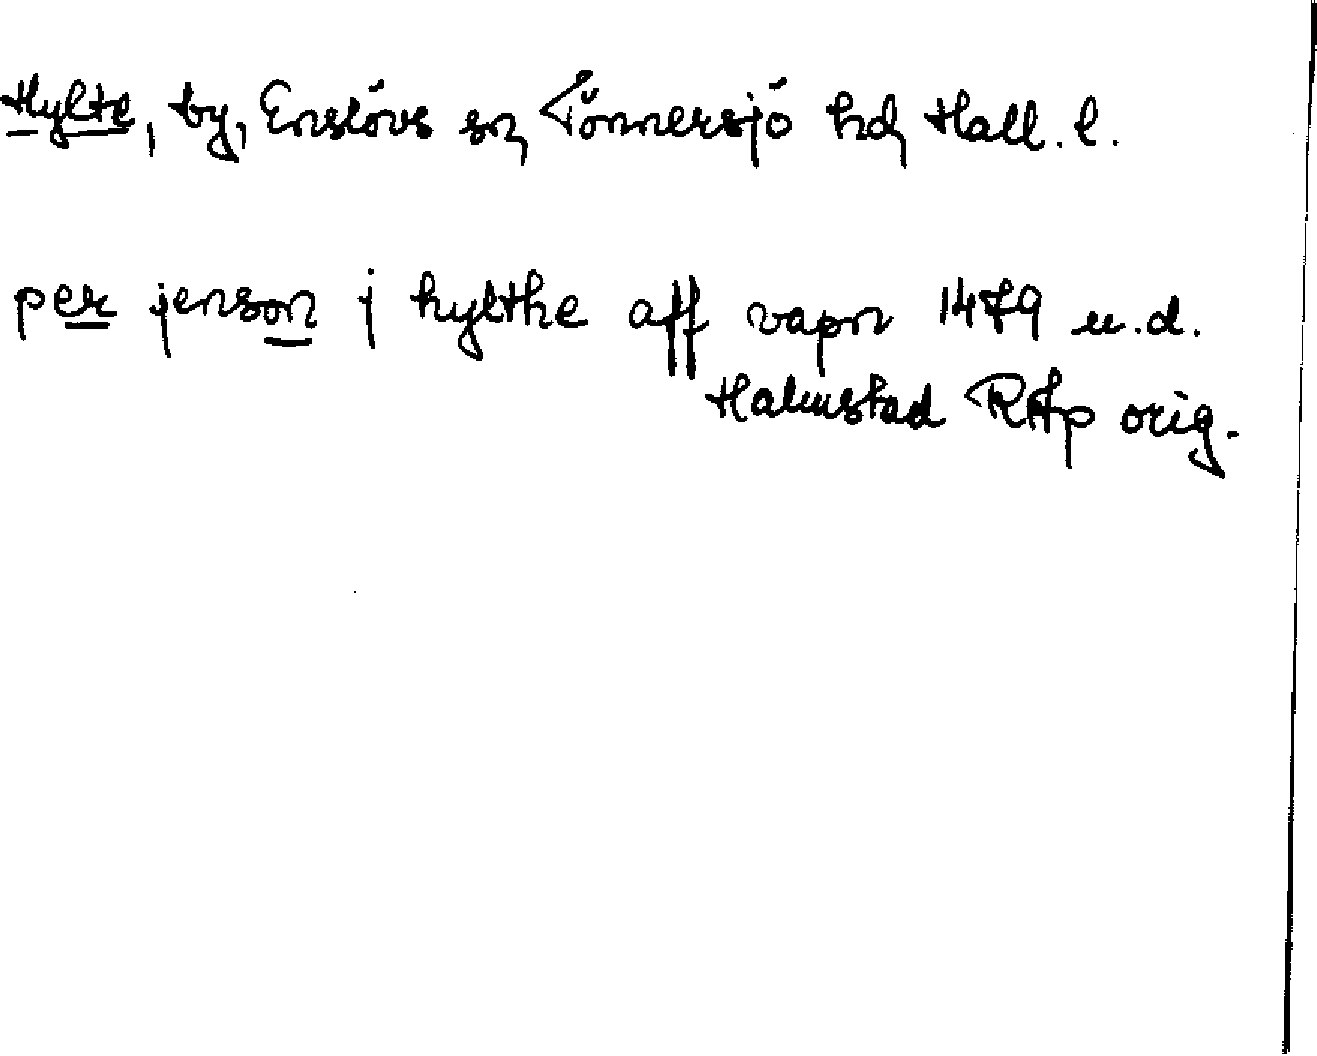 Hylte, by, Enslövs sn, Tönnersjö hd, Hall. l.
per jenson j hylthe aff vapn 1479 u.d.
Halmstad RAp orig.